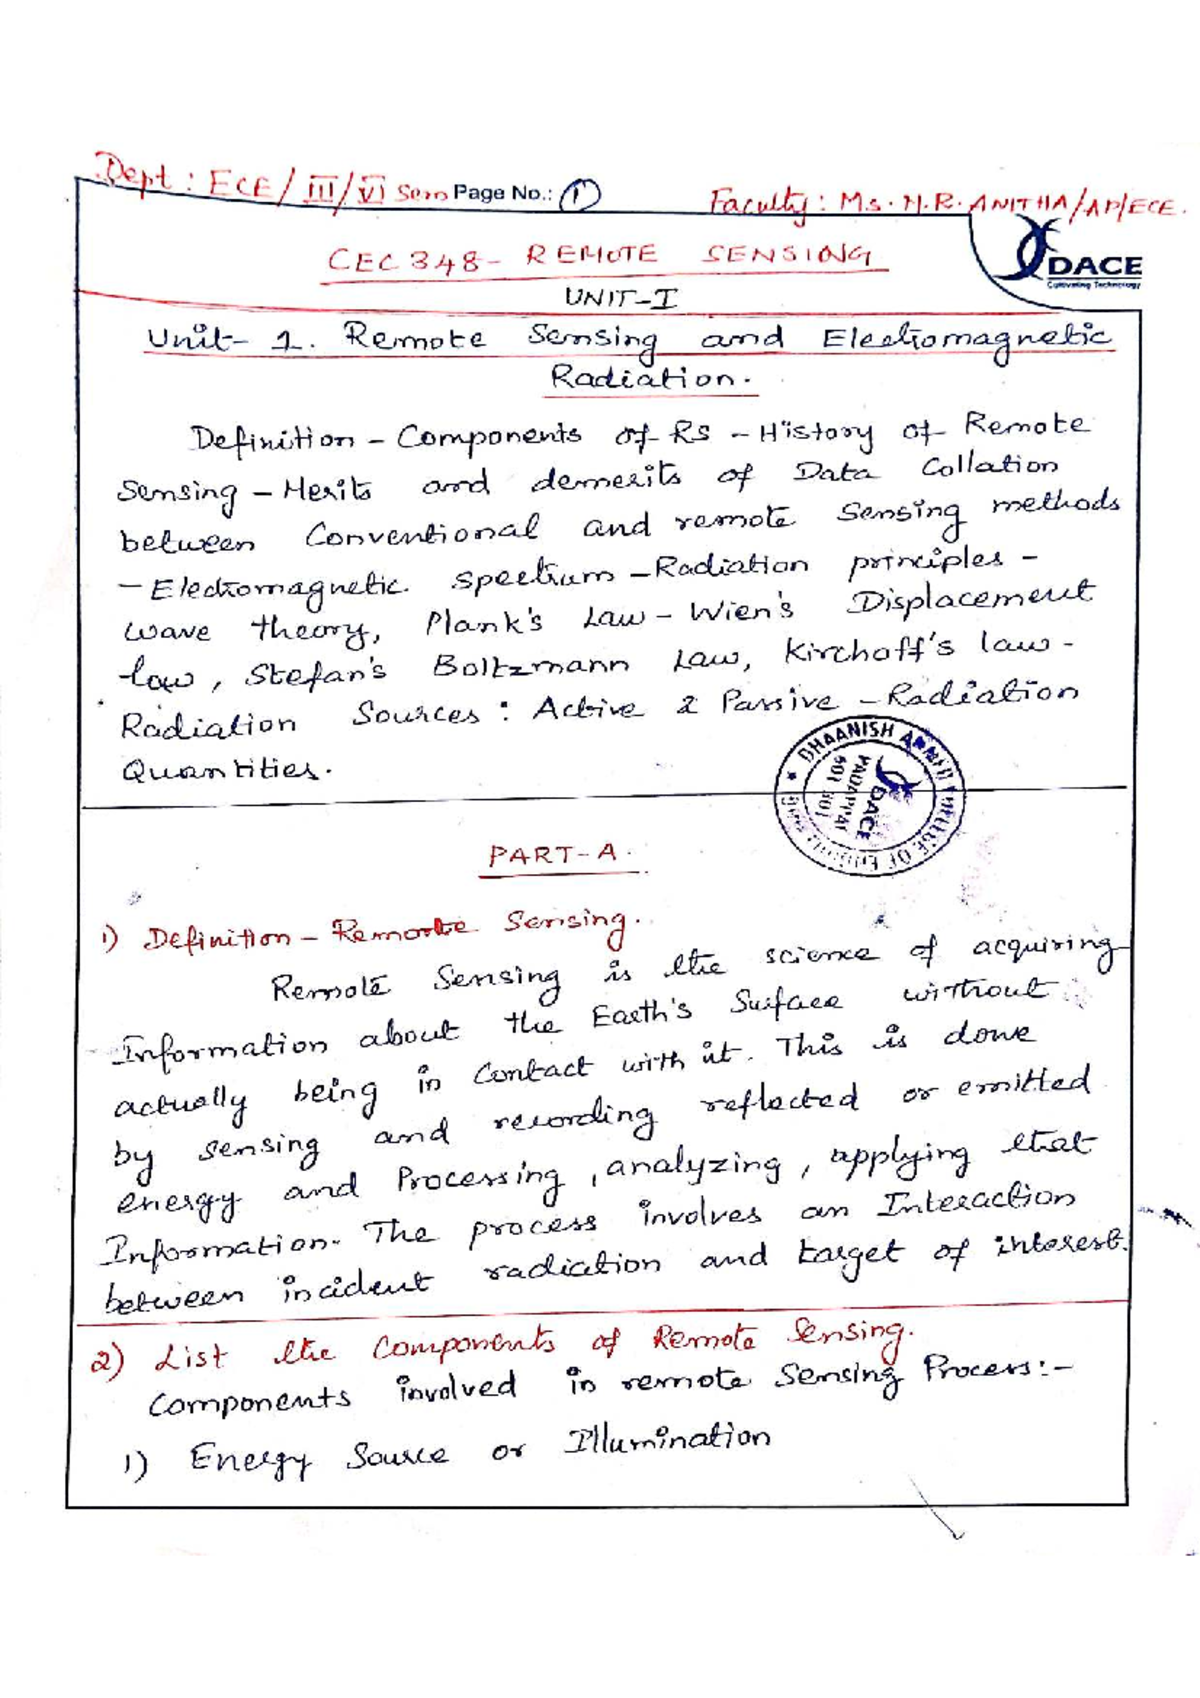 Dept : ECE/III/VI Sem Page No.: 1 Faculty : Ms. M.R. ANITHA/AP/ECE.
DACE
Cultivating Technology
CEC348- REMOTE SENSING
UNIT-I
Unit- 1. Remote Sensing and Electromagnetic
Radiation.
Definition - Components of RS - History of Remote
Sensing - Merits and demerits of Data Collation
between Conventional and remote Sensing methods
- Electromagnetic Spectrum - Radiation principles -
Wave theory, Plank's Law - Wien's Displacement
law, Stefan's Boltzmann Law, Kirchoff's law -
Radiation Sources : Active & Passive - Radiation
Quantities.
DHAANISH AHMED COLLEGE OF
PADAPPAI
601 301
DACE
PART-A.
1) Definition - Remote Sensing.
Remote Sensing is the science of acquiring
Information about the Earth's Surface without
actually being in Contact with it. This is done
by sensing and recording reflected or emitted
energy and Processing, analyzing, applying that
Information. The process involves an Interaction
between incident radiation and target of interest.
2) List the Components of Remote Sensing.
Components involved in remote Sensing Process:-
1) Energy Source or Illumination